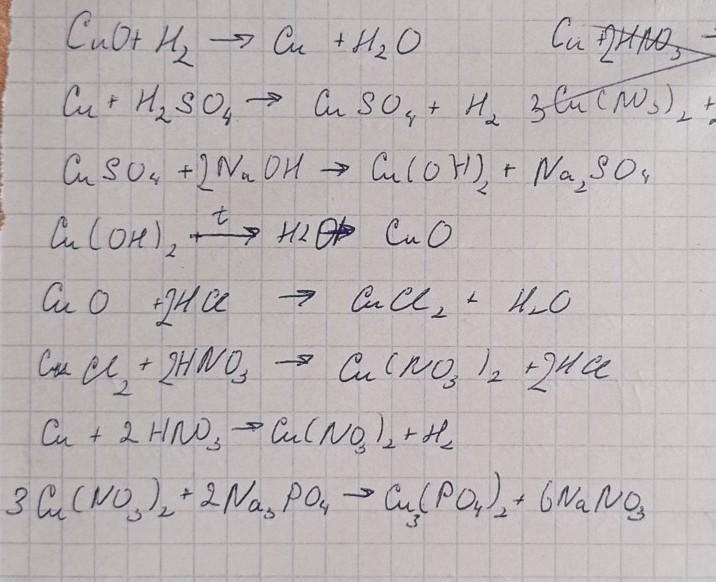 CuO + H₂ → Cu + H₂O Cu + 2HNO₃ →
Cu + H₂SO₄ → CuSO₄ + H₂ 3Cu(NO₃)₂ +
CuSO₄ + 2NaOH → Cu(OH)₂ + Na₂SO₄
Cu(OH)₂ t→ H2O + CuO
CuO + 2HCl → CuCl₂ + H₂O
CuCl₂ + 2HNO₃ → Cu(NO₃)₂ + 2HCl
Cu + 2HNO₃ → Cu(NO₃)₂ + H₂
3Cu(NO₃)₂ + 2Na₃PO₄ → Cu₃(PO₄)₂ + 6NaNO₃